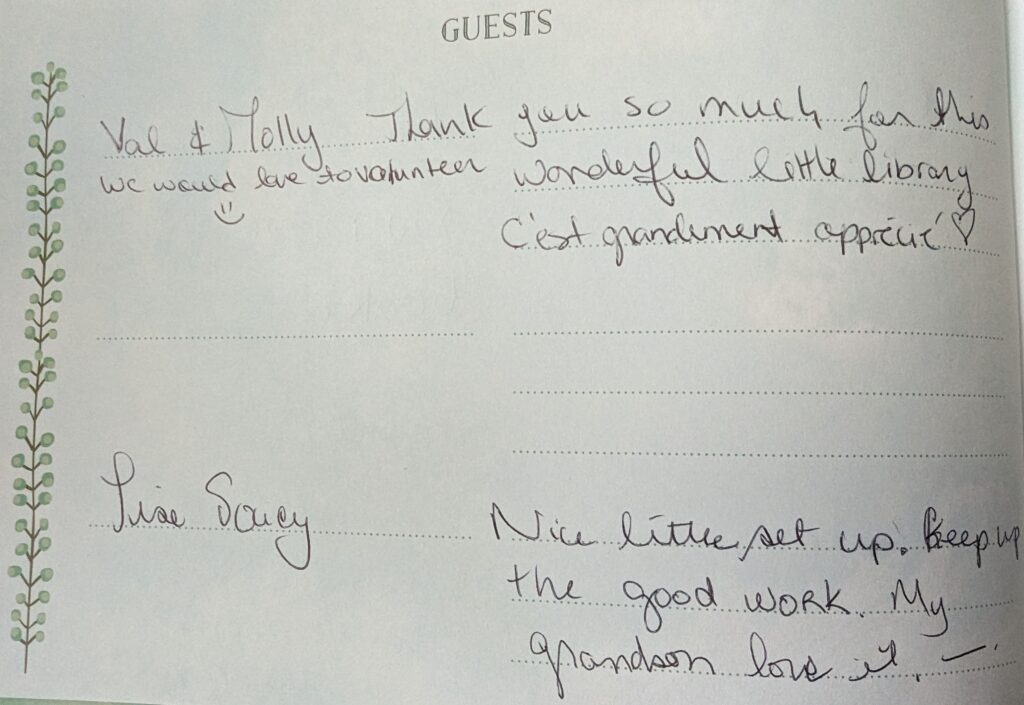 GUESTS
Val & Molly Thank you so much for this
we would love to volunteer wonderful little library
C'est grandement apprécié ♡
Lise Soucy Nice little set up. Keep up
the good work. My
grandson love it. —